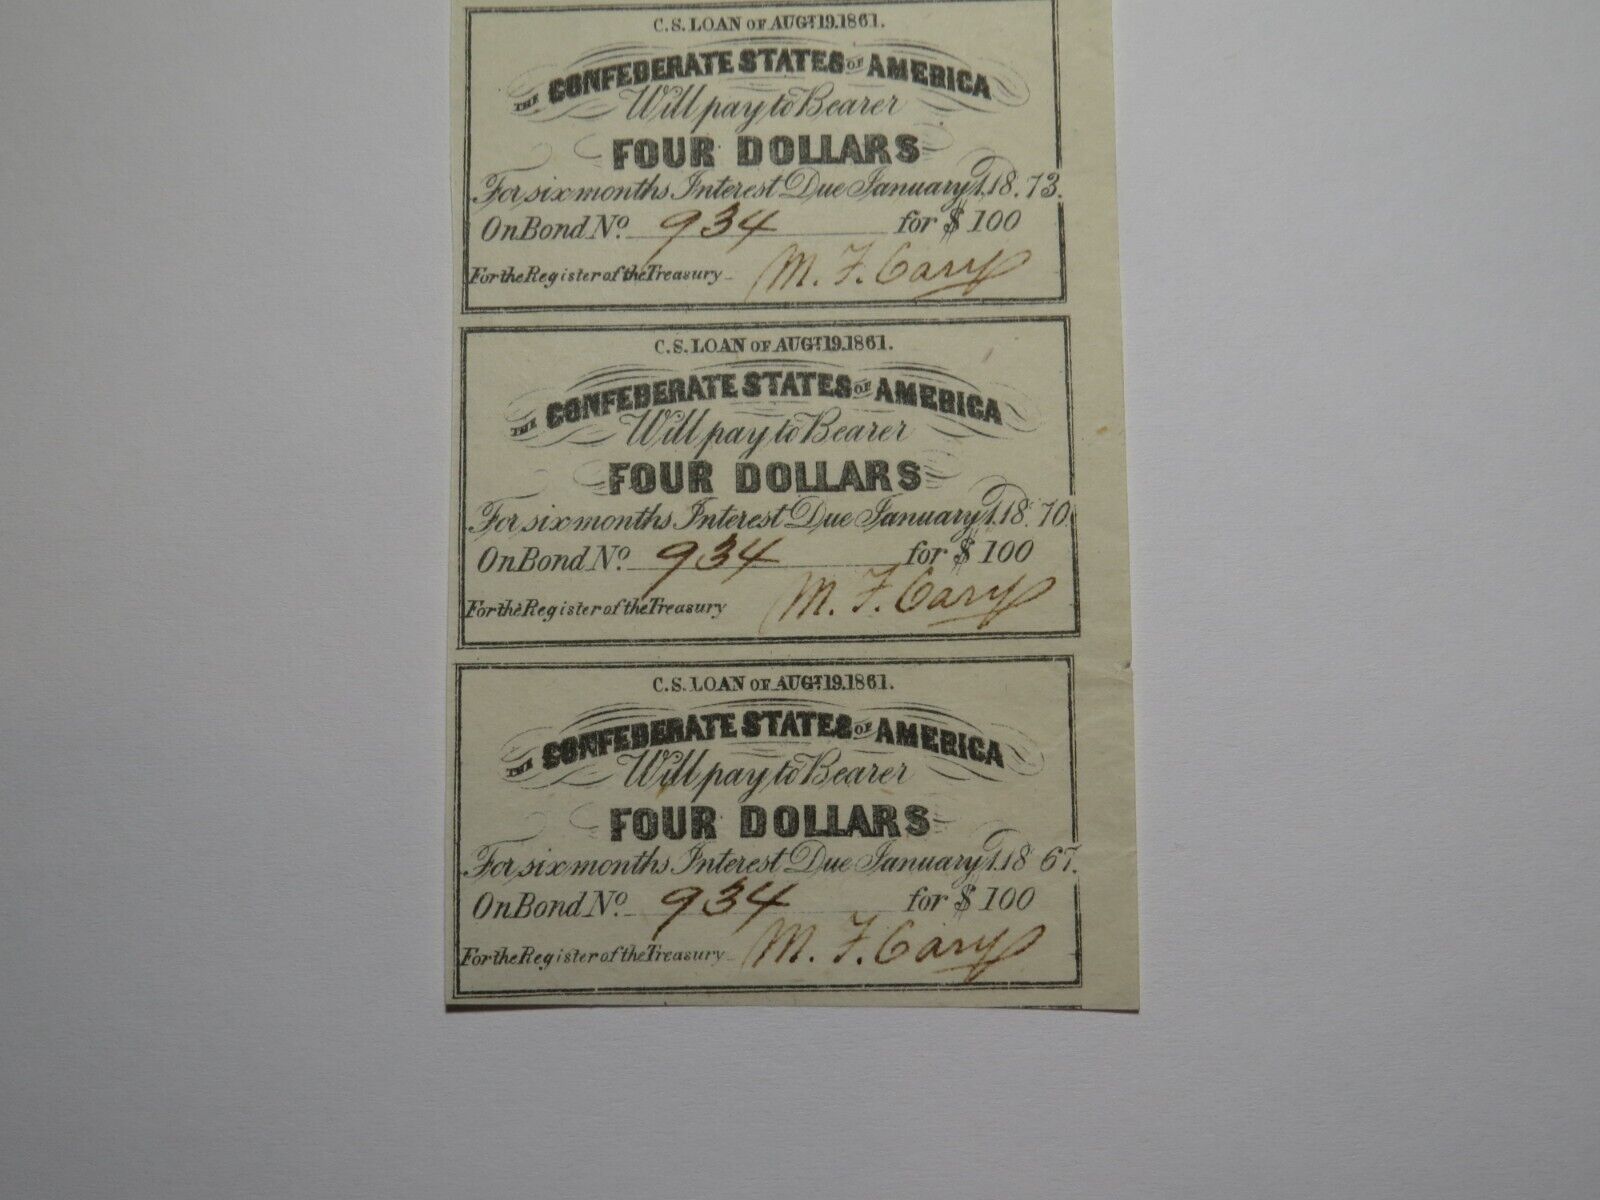 C.S. LOAN OF AUGT. 19. 1861.
THE CONFEDERATE STATES OF AMERICA
Will pay to Bearer
FOUR DOLLARS
For six months Interest Due January 1, 18 73.
On Bond No. 934 for $ 100
For the Register of the Treasury M. F. Cary
C.S. LOAN OF AUGT. 19. 1861.
THE CONFEDERATE STATES OF AMERICA
Will pay to Bearer
FOUR DOLLARS
For six months Interest Due January 1, 18 70.
On Bond No. 934 for $ 100
For the Register of the Treasury M. F. Cary
C.S. LOAN OF AUGT. 19. 1861.
THE CONFEDERATE STATES OF AMERICA
Will pay to Bearer
FOUR DOLLARS
For six months Interest Due January 1, 18 67.
On Bond No. 934 for $ 100
For the Register of the Treasury M. F. Cary